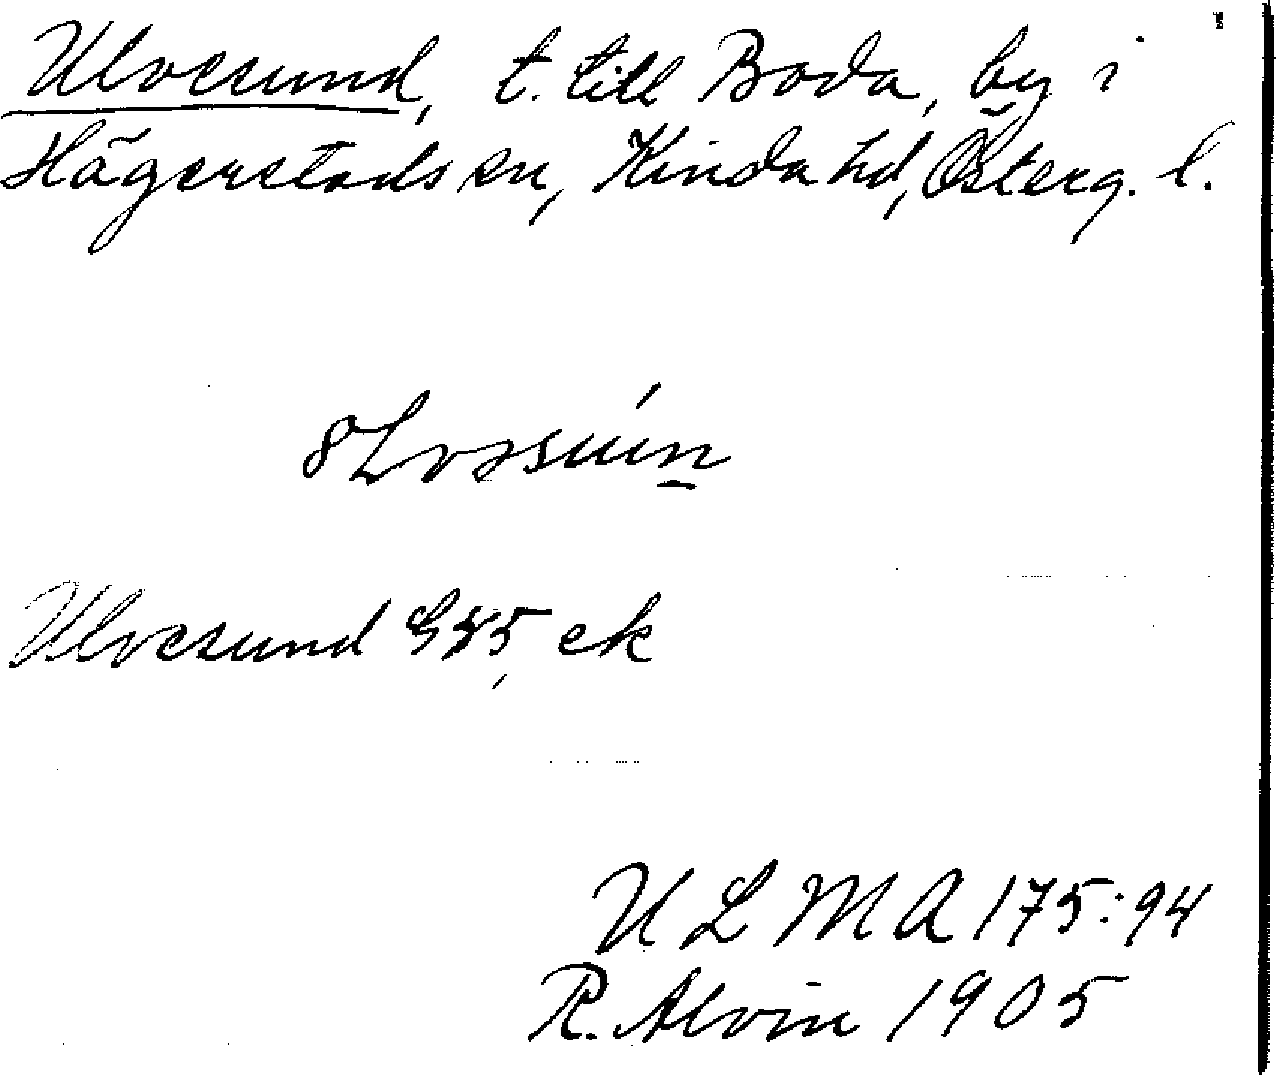 Ulvesund, t. till Boda, by i
Hägerstads sn, Kinda hd, Österg. l.
Ulvesund G 45, ek
U L M A 175:94
R. Alvin 1905